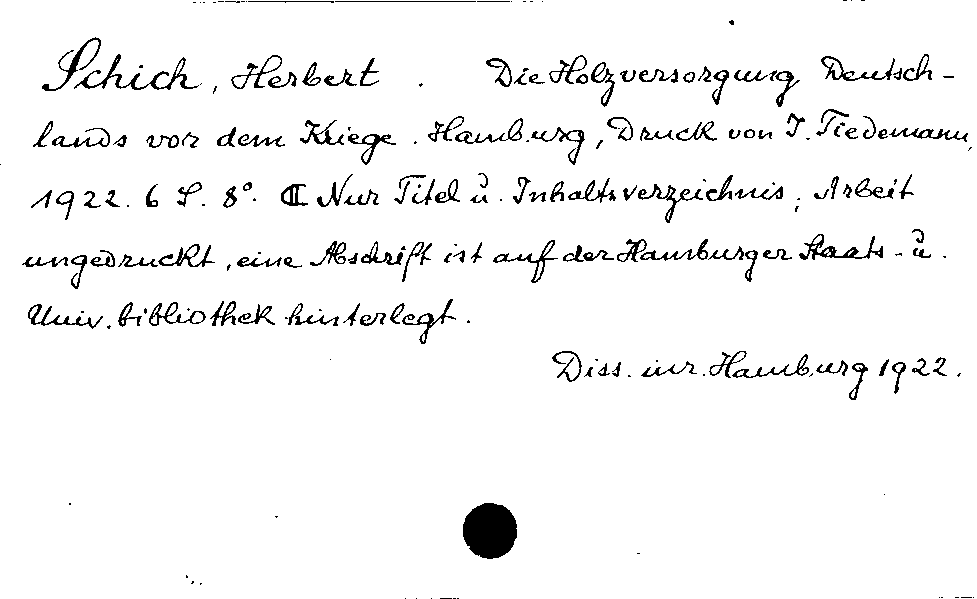 Schich, Herbert. Die Holzversorgung Deutsch-
lands vor dem Kriege. Hamburg, Druck von J. Tiedemann,
1922. 6 S. 8°. ℂ Nur Titel u. Inhaltsverzeichnis, Arbeit
ungedruckt, eine Abschrift ist auf der Hamburger Staats- u.
Univ. bibliothek hinterlegt.
Diss. iur. Hamburg 1922.